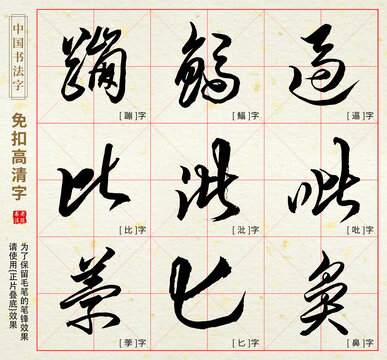 中国书法字
免扣高清字
为了保留毛笔的笔锋效果
请使用[正片叠底]效果
蹦 鳊 逼
[ 蹦 ]字 [ 鳊 ]字 [ 逼 ]字
比 沘 吡
[ 比 ]字 [ 沘 ]字 [ 吡 ]字
荸 匕 鼻
[ 荸 ]字 [ 匕 ]字 [ 鼻 ]字